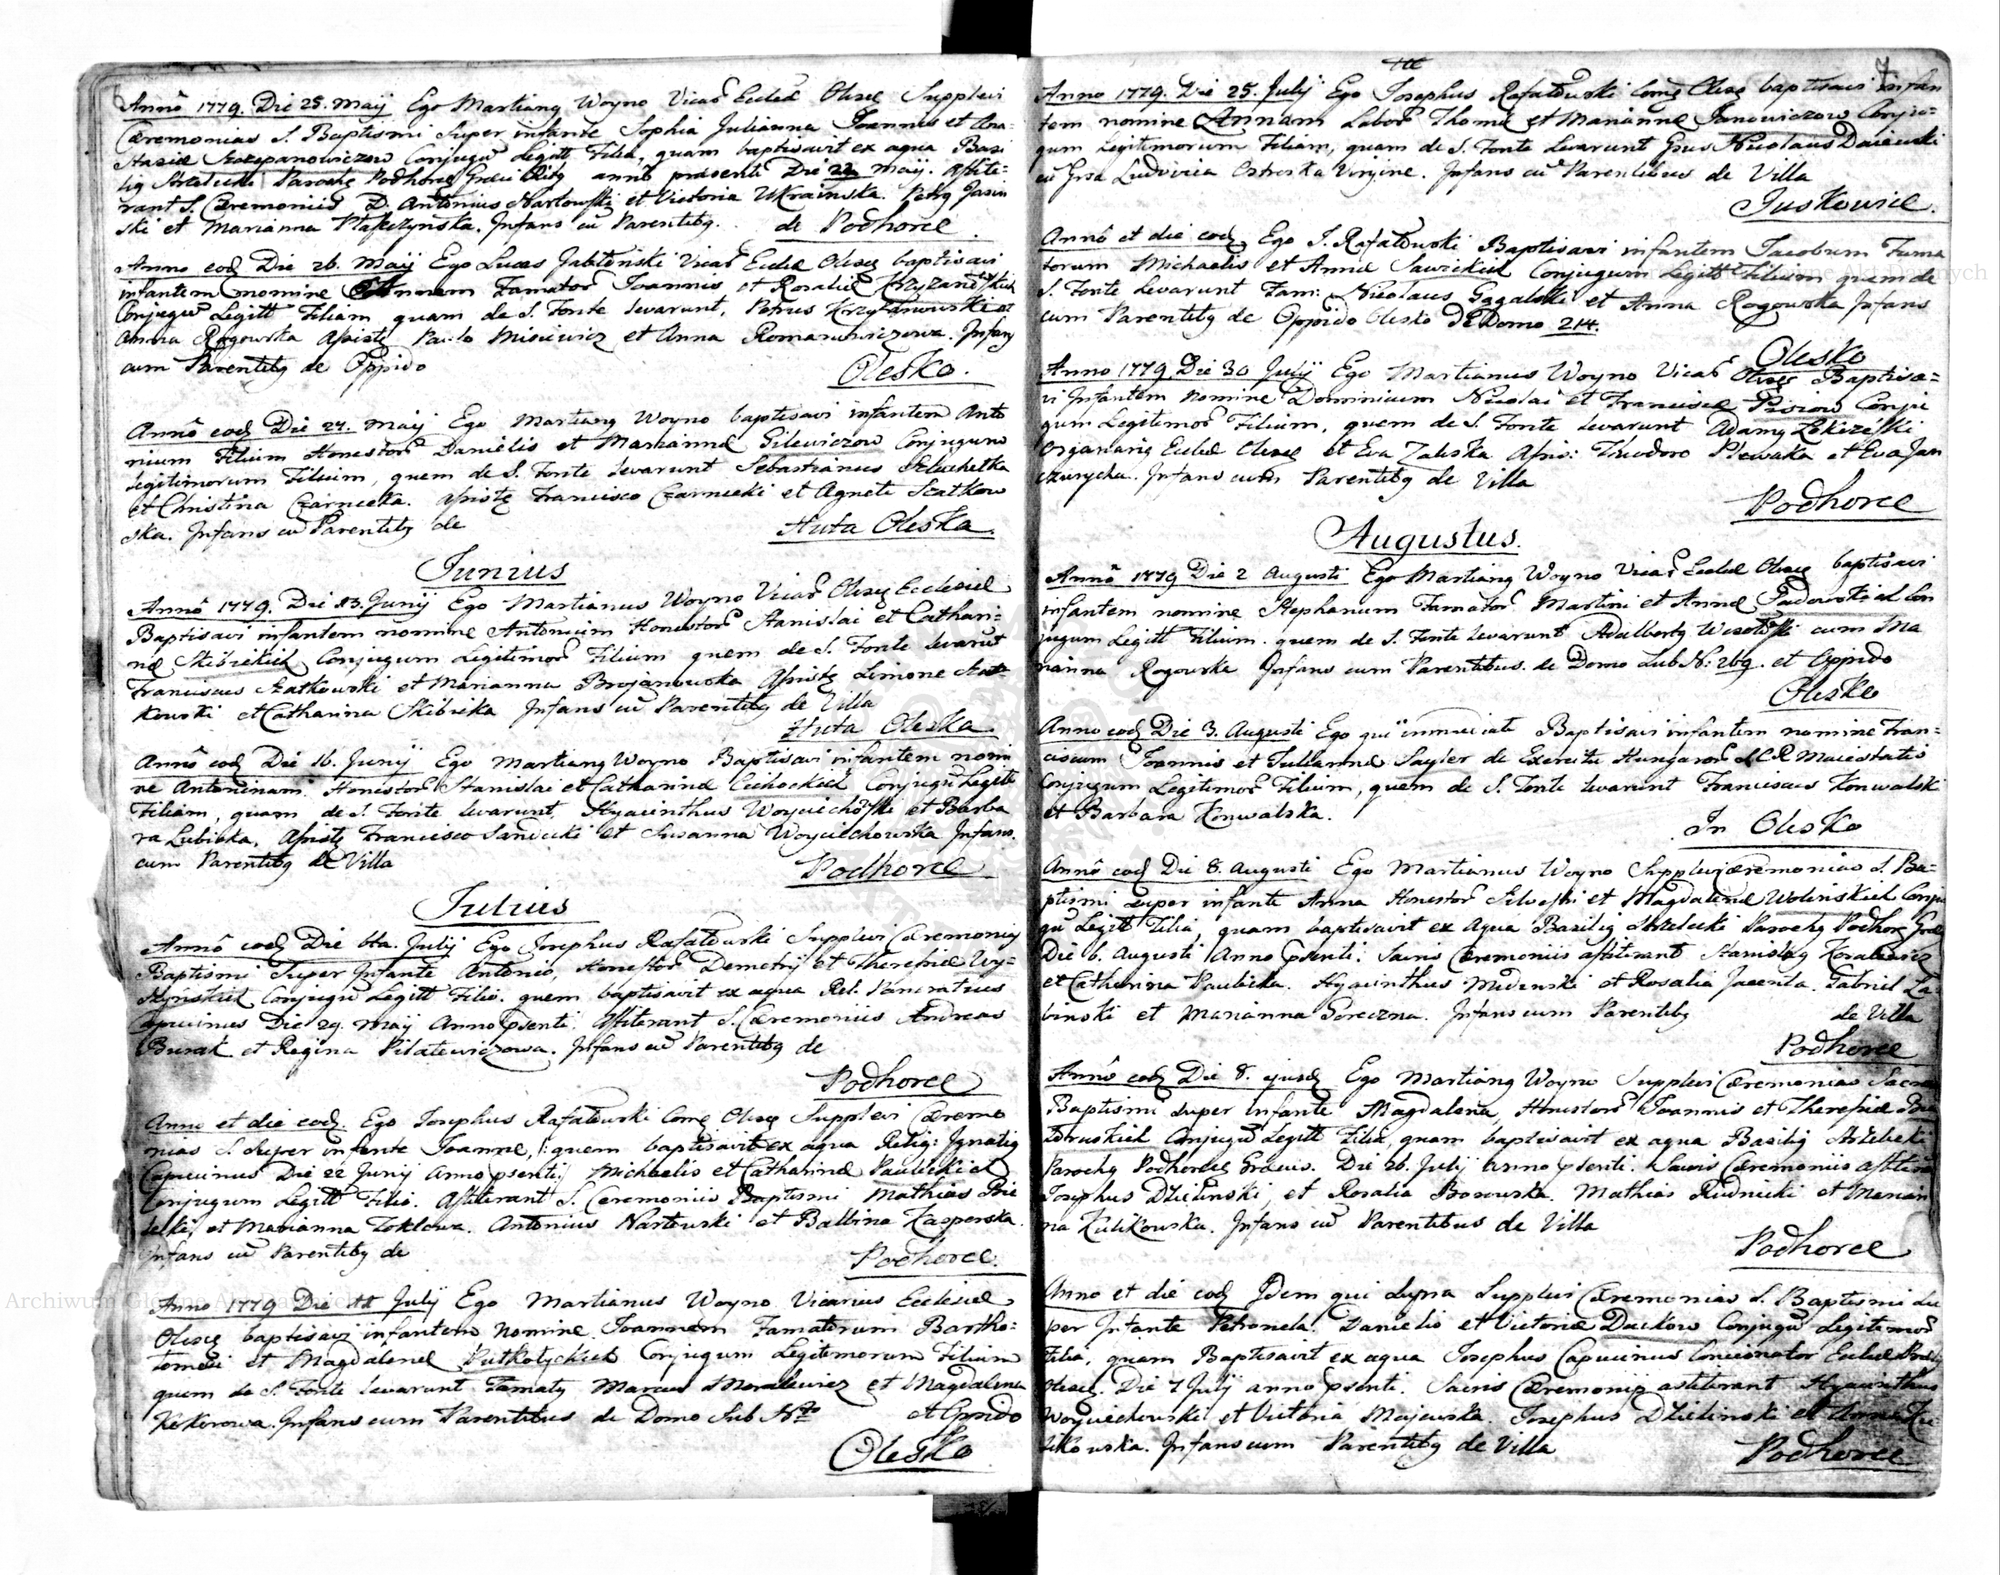 Anno 1779. Die 25. Maij Ego Martiang Woyno Vicar Eccles Olesc Supplevi
Cæremonias S. Baptismi Super infante Sophia Julianna Joannis et Ana-
stasiæ Szczepanowiczow Conjugu Legitt Filia, quam baptisavit ex aqua Basi
lig Strzelecki Parochg Podhorec Græci Ritg anno præsenti Die 22 Maij. Assite-
rant S. Cæremoniis D. Antonius Nartowski et Victoria Ukrainska. Petrg Jasin
ski et Marianna Infans cu Parentibg. de Podhorce.
Anno eod Die 26. Maij Ego Lucas Jablonski Vicar Eccles Olesc baptisavi
infantem nomine Famator Joannis et Rosaliæ
Conjugu Legitt Filiam, quam de S. Fonte levarunt, Petrus Krzyżanowski et
Anna Rogowska Assistg Paulo Misiewicz et Anna Romanowiczowa. Infans
cum Parentibg de Oppido
Olesko.
Anno eod Die 27. Maij Ego Martiang Woyno baptisavi infantem Anto
nium Filium Honestor Danielis et Mariannæ Gilewiczow Conjugum
Legitimorum Filium, quem de S. Fonte levarunt Sebastianus
et Christina Czarniecka. Assistg Francisco Czarniecki et Agnete Szatkow
ska. Infans cu Parentibg de Huta Oleska.
Junius
Anno 1779. Die 13. Junij Ego Martianus Woyno Vicar Olesc Ecclesiæ
Baptisavi infantem nomine Antonium Honestor Stanislai et Cathari-
næ Skibickich Conjugum Legitimor Filium quem de S. Fonte levarut
Franciscus Szatkowski et Marianna Brojanowska Assistg Simone Szat
kowski et Catharina Skibicka Infans cu Parentibg de Villa
Huta Oleska.
Anno eod Die 16. Junij Ego Martiang Woyno Baptisavi infantem nomi
ne Antoninam Honestor Stanislai et Catharinæ Cichockich Conjugu Legitt
Filiam, quam de S. Fonte levarunt, Hyacinthus Woyciechowski et Barba
ra Lubicka, Assistg Francisco Sanicki et Susanna Woyciechowska Infans.
cum Parentibg de Villa
Podhorce
Julius
Anno eod Die 4ta. Julij Ego Josephus Rafatowski Supplevi Cæremonig
Baptismi Super Infante Antonio, Honestor Demetrij et Theresiæ Wy-
Conjugu Legitt Filio. quem baptisavit ex aqua Rel. Pancratius
Capucinus Die 29. Maij Anno psenti. Assiterant S. Cæremoniis Andreas
Burak et Regina Pilatewiczowa. Infans cu Parentibg de
Podhorce
Anno et die eod. Ego Josephus Rafatowski Comg Olesc Supplevi Cæremo
nias S. Super infante Joanne, quem baptisavit ex aqua Relig: Ignatig
Capucinus Die 22 Junij Anno psenti, Michaelis et Catharinæ Pawlickich
Conjugum Legitt Filio. Assiterant S. Cæremoniis Baptismi Mathias
et Marianna Antonius Nartowski et Balbina Kasperska.
Infans cu Parentibg de Podhorce.
Anno 1779 Die Julij Ego Martianus Woyno Vicarius Ecclesiæ
Olesc baptisavi infantem nomine Joannem Famatorum Bartho-
lomæi et Magdalenæ Conjugum Legitimorum Filium
quem de S. Fonte levarunt Famatg Marcus Moralewicz et Magdalena
Kekerowa. Infans cum Parentibus de Domo Sub Nro et Oppido
Olesko
7
Anno 1779. Die 25. Julij Ego Josephus Rafatowski Comg Olesc baptisavi infan
tem nomine Annam Labor Thomæ et Mariannæ Janowiczow Conju-
gum Legitimorum Filiam, quam de S. Fonte levarunt Gsus Nicolaus
cu Gsa Ludovica Ostroska Virgine. Infans cu Parentibus de Villa
Juskowice.
Anno et die eod. Ego J. Rafatowski Baptisavi infantem Jacobum Fama
torum Michaelis et Annæ Sawickich Conjugum Legitt Filium quem de
S. Fonte levarunt Fam: Nicolaus Gągalski et Anna Rogowska Infans
cum Parentibg de Oppido Olesko de Domo 214.
Olesko
Anno 1779. Die 30 Julij Ego Martianus Woyno Vicar Olesc Baptisa-
vi Infantem nomine Dominicum Nicolai et Franciscæ Conju
gum Legitimor Filium, quem de S. Fonte levarunt Adamg
Organarig Eccles Olesc et Eva Zaleska Assis: Theodoro Plewaka et Eva Jan
czurycha. Infans cum Parentibg de Villa
Podhorce
Augustus.
Anno 1779 Die 2 Augusti Ego Martiang Woyno Vicar Eccles Olesc baptisavi
infantem nomine Stephanum Famator Martini et Annæ Sadowskich Con
jugum Legitt Filium. quem de S. Fonte levarunt Adalbertg cum Ma
rianna Rogowska Infans cum Parentibus. de Domo Sub N: 269. et Oppido
Olesko
Anno eod Die 3. Augusti Ego qui immediate Baptisavi infantem nomine Fran-
ciscum Joannis et Juliannæ Sayler de Exercitu Hungaror S.C.R. Maiestatis
Conjugum Legitimor Filium, quem de S. Fonte levarunt Franciscus Konwalsk
et Barbara Konwalska.
In Olesko
Anno eod Die 8. Augusti Ego Martianus Woyno Supplevi Cæremonias S. Ba-
ptismi Super infante Anna Honestor Silvestri et Magdalenæ Wolinskich Conju
gu Legitt Filia, quam baptisavit ex Aqua Basilig Strzelecki Parochg Podhor
Die 6. Augusti Anno psenti: Sacris Cæremoniis assiterant Stanislag Koralewicz
et Catherina Pawlicka. Hyacinthus et Rosalia Jacenta. Gabriel La-
binski et Marianna Infans cum Parentibg de Villa
Podhorce
Anno eod Die 8. ejusd Ego Martiang Woyno Supplevi Cæremonias Sacra
Baptismi super Infante Magdalena, Honestor Joannis et Theresiæ
Conjugu Legitt Filia, quam baptisavit ex aqua Basilig Strzelecki
Parochg Podhorec Græcus. Die 26. Julij anno psenti. Sacris Cæremoniis
Josephus Dzielinski, et Rosalia Borowska. Mathias Rudnicki et Marian
na Kulikowska. Infans cu Parentibus de Villa
Podhorce
Anno et die eod Idem qui supra Supplevi Cæremonias S. Baptismi Su
per Infante Petronela. Danielis et Victoriæ Duckow Conjugu Legitimor
Filia, quam Baptisavit ex aqua Josephus Capucinus Concionator Eccles
Olesc. Die 7 Julij anno psenti. Sacris Cæremoniis astiterant Hyacinthus
Woyciechowski et Victoria Majewska. Josephus Dzielinski et Anna Ku
likowska. Infans cum Parentibg de Villa
Podhorce
Archiwum Główne Akt Dawnych